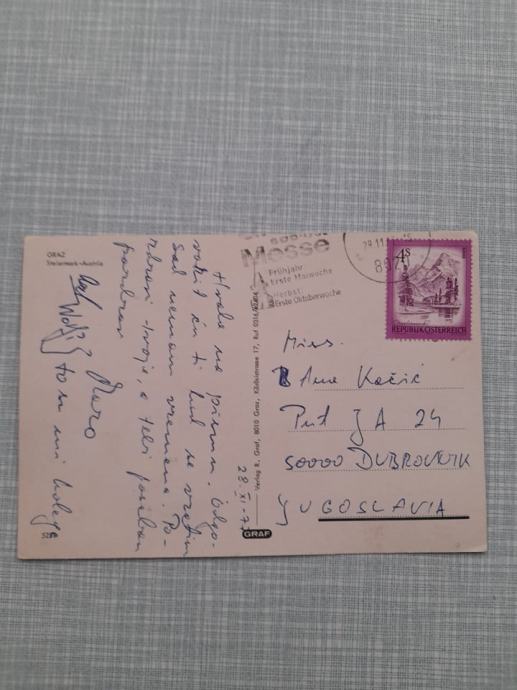 GRAZ
Steiermark-Austria
Messe
Frühjahr
Erste Maiwoche
Herbst
Erste Oktoberwoche
4S
REPUBLIK ÖSTERREICH
Hvala na pismu. Odgo-
vorit ću ti kad se vratim
Sad nemam vremena. Po-
zdravi tvoje, a tebi poseban
pozdrav
Maro
to su mi kolege
28. XI.
Verlag R. Graf, 8010 Graz
GRAF
Miss.
Ana Kačić
Put JA 24
50000 DUBROVNIK
JUGOSLAVIA